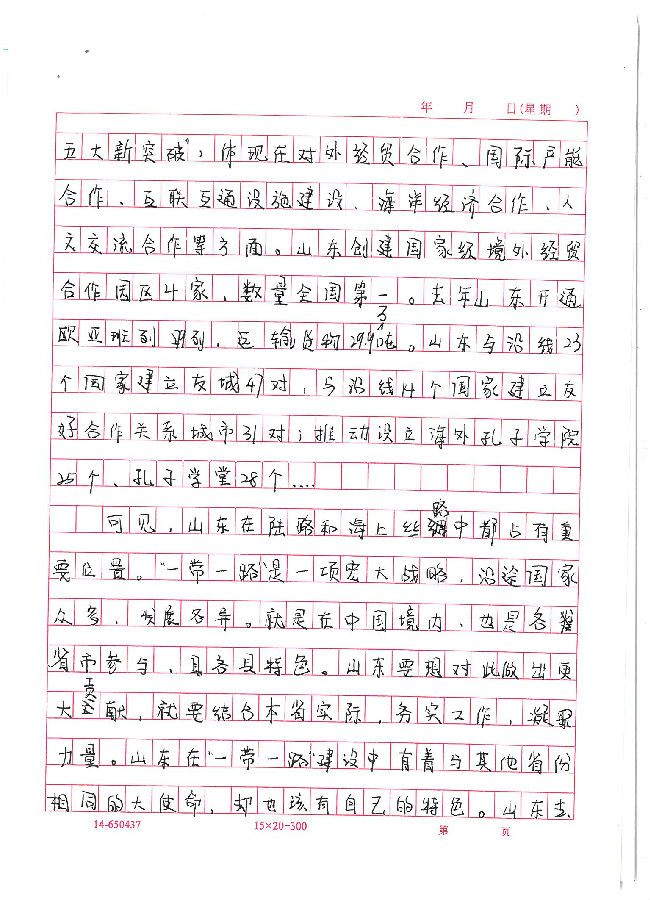 年 月 日(星期 )
五大新突破”，体现在对外经贸合作、国际产能
合作、互联互通设施建设、海洋经济合作、人
文交流合作等方面。山东创建国家级境外经贸
合作园区4家，数量全国第一。去年山东开通
欧亚班列 列，运输货物29.90万吨。山东与沿线23
个国家建立友城47对，与沿线14个国家建立友
好合作关系城市31对；推动设立海外孔子学院
25个、孔子学堂28个....
可见，山东在陆路和海上丝路中都占有重
要位置。“一带一路”是一项宏大战略，沿途国家
众多，发展各异。就是在中国境内，也是各
省市参与，具各具特色。山东要想对此做出更
大贡献，就要结合本省实际，务实工作，凝聚
力量。山东在“一带一路”建设中有着与其他省份
相同的大使命，却也该有自己的特色。山东去
14-650437 15×20=300 第 页